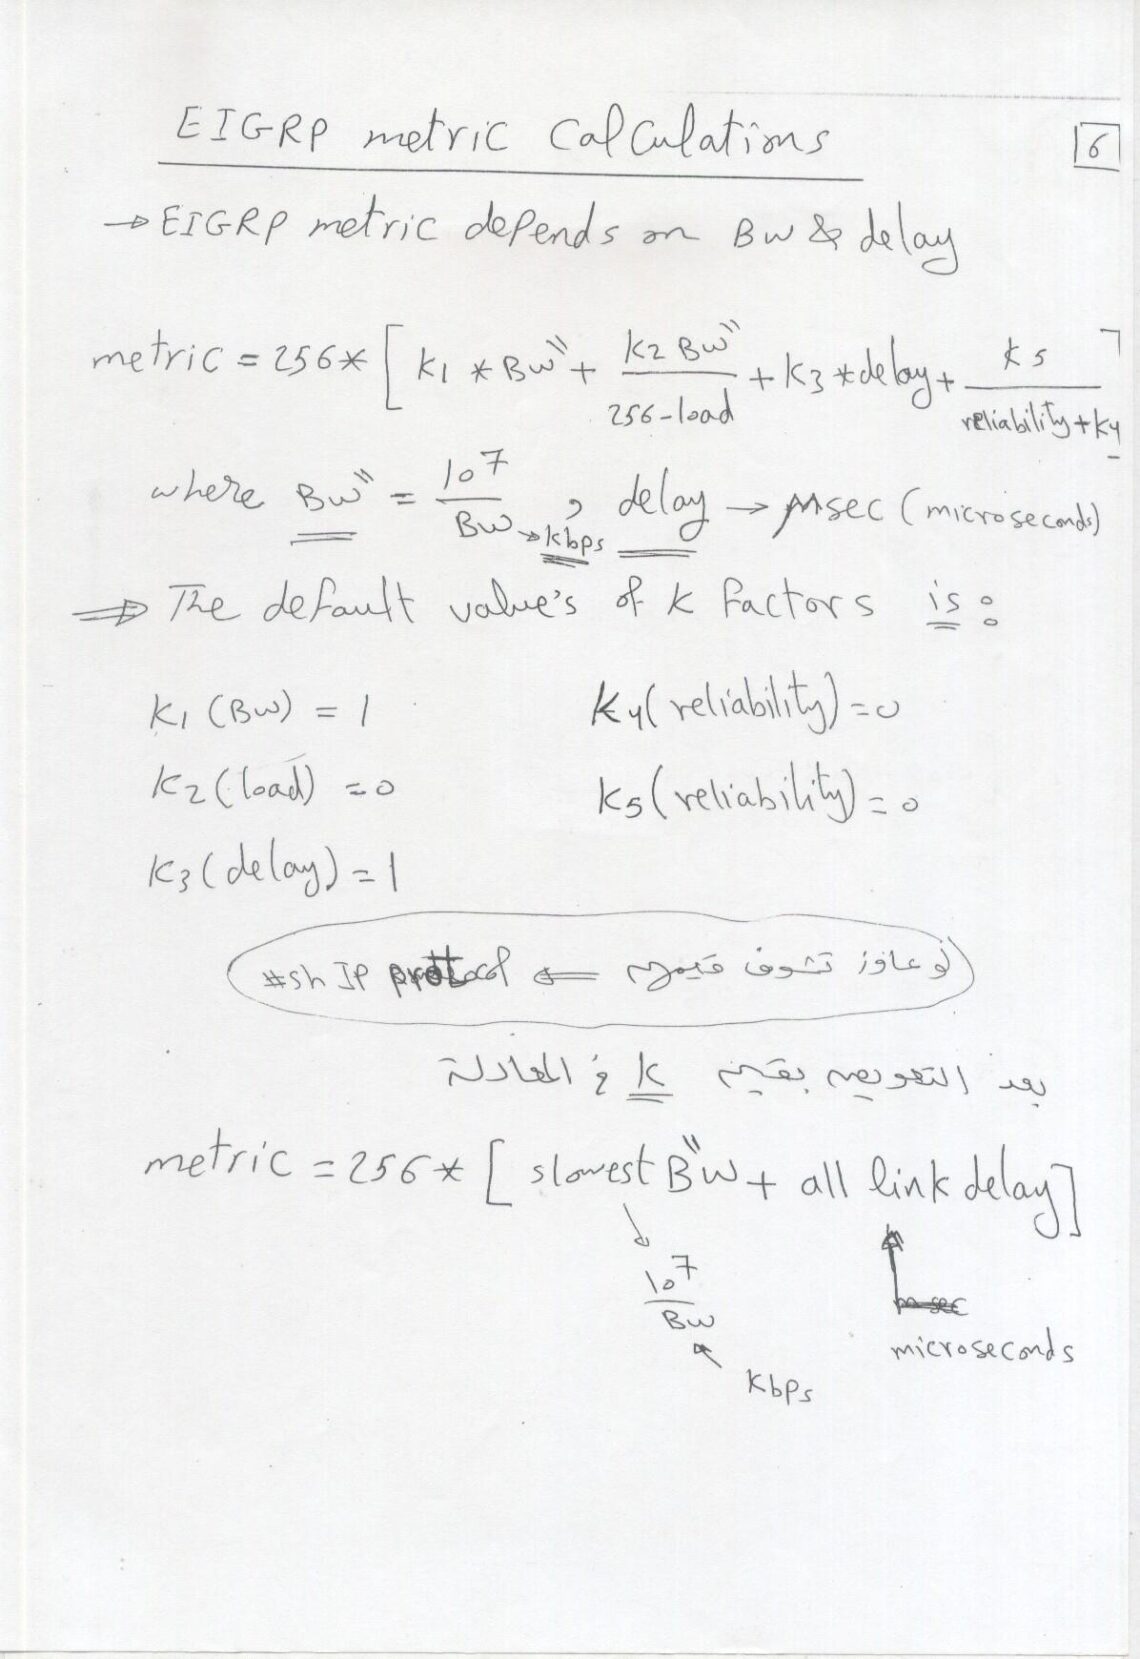 EIGRP metric Calculations
6
→ EIGRP metric depends on BW & delay
metric = 256 * [ K1 * BW" + K2 BW" / 256-load + K3 * delay + K5 / reliability + K4 ]
where BW" = 10^7 / BW → kbps , delay → Msec (microseconds)
⇒ The default value's of K factors is :
K1 (BW) = 1
K4 (reliability) = 0
K2 (load) = 0
K5 (reliability) = 0
K3 (delay) = 1
لو عاوز تشوف قيمهم ⇐ #sh IP protocol
بعد التعويض بقيم K في المعادلة
metric = 256 * [ slowest B"W + all link delay ]
10^7 / BW
msec
microseconds
kbps